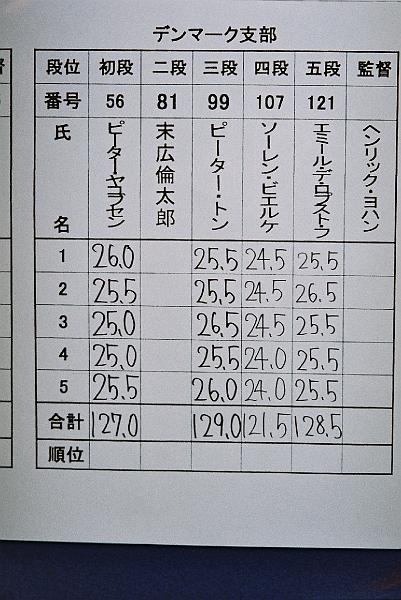 デンマーク支部
段位 初段 二段 三段 四段 五段 監督
番号 56 81 99 107 121
氏名 ピーター・ヤコブセン 末広倫太郎 ピーター・トン ソーレン・ビエルケ エミール・デ・ロブストラ ヘンリック・ヨハン
1 26.0 25.5 24.5 25.5
2 25.5 25.5 24.5 26.5
3 25.0 26.5 24.5 25.5
4 25.0 25.5 24.0 25.5
5 25.5 26.0 24.0 25.5
合計 127.0 129.0 121.5 128.5
順位